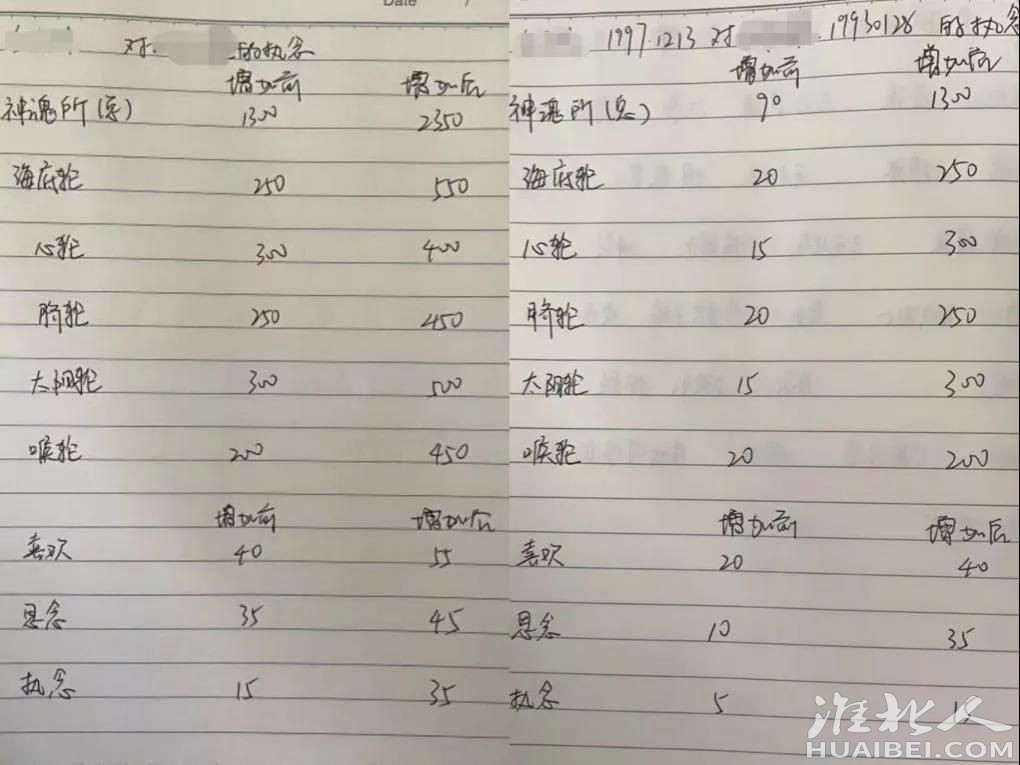 Date /
对 的执念
增加前 增加后
神魂所(总) 1300 2350
海底轮 250 550
心轮 300 400
脐轮 250 450
太阳轮 300 500
喉轮 200 450
增加前 增加后
喜欢 40 55
思念 35 45
执念 15 35
1997.1213 对 19930128 的执念
增加前 增加后
神魂所(总) 90 1300
海底轮 20 250
心轮 15 300
脐轮 20 250
太阳轮 15 300
喉轮 20 200
增加前 增加后
喜欢 20 40
思念 10 35
执念 5 15
淮北人
HUAIBEI.COM